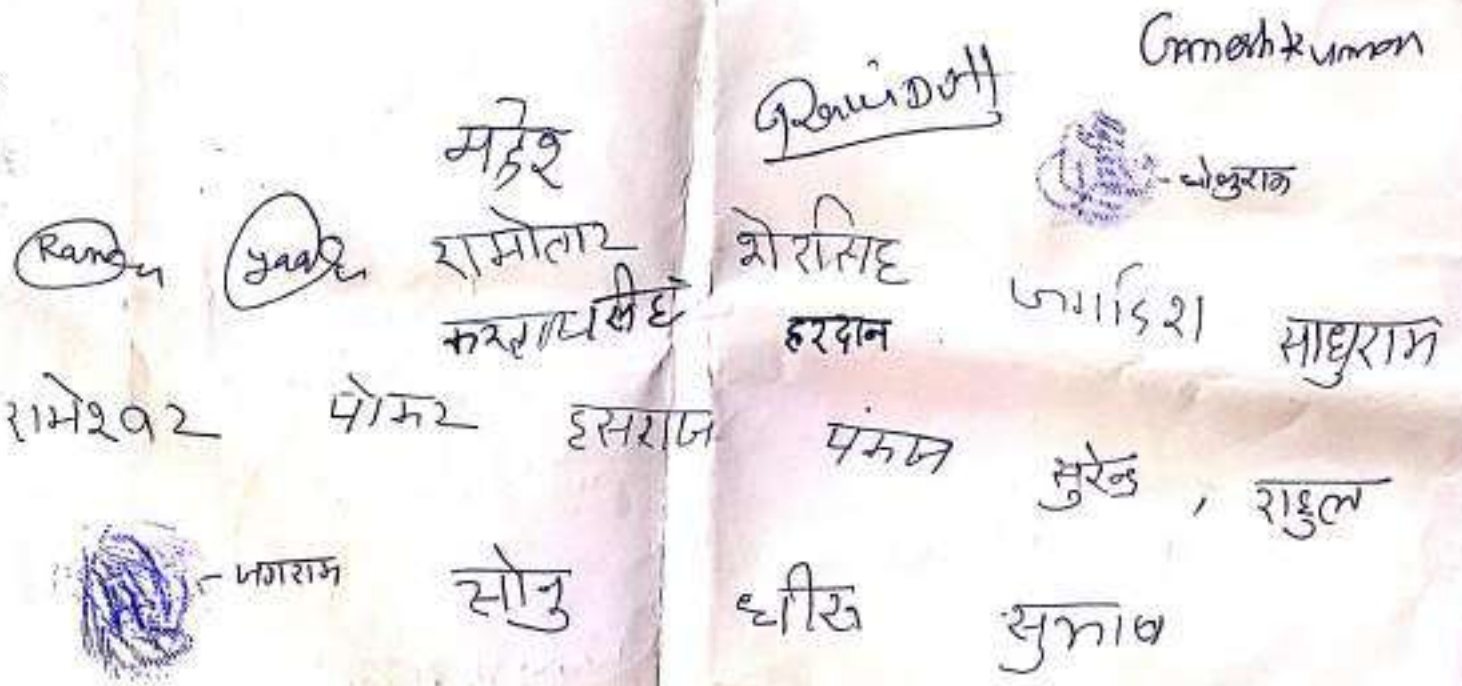 Ganesh Kumar
महेश RaviDutt
रामोतार शेरसिह
हरदान जगदिश साधुराम
रामेश्वर पोमर हसराज पंकज सुरेन्द्र , राहुल
- जगराम सोनु धीरू सुभाष